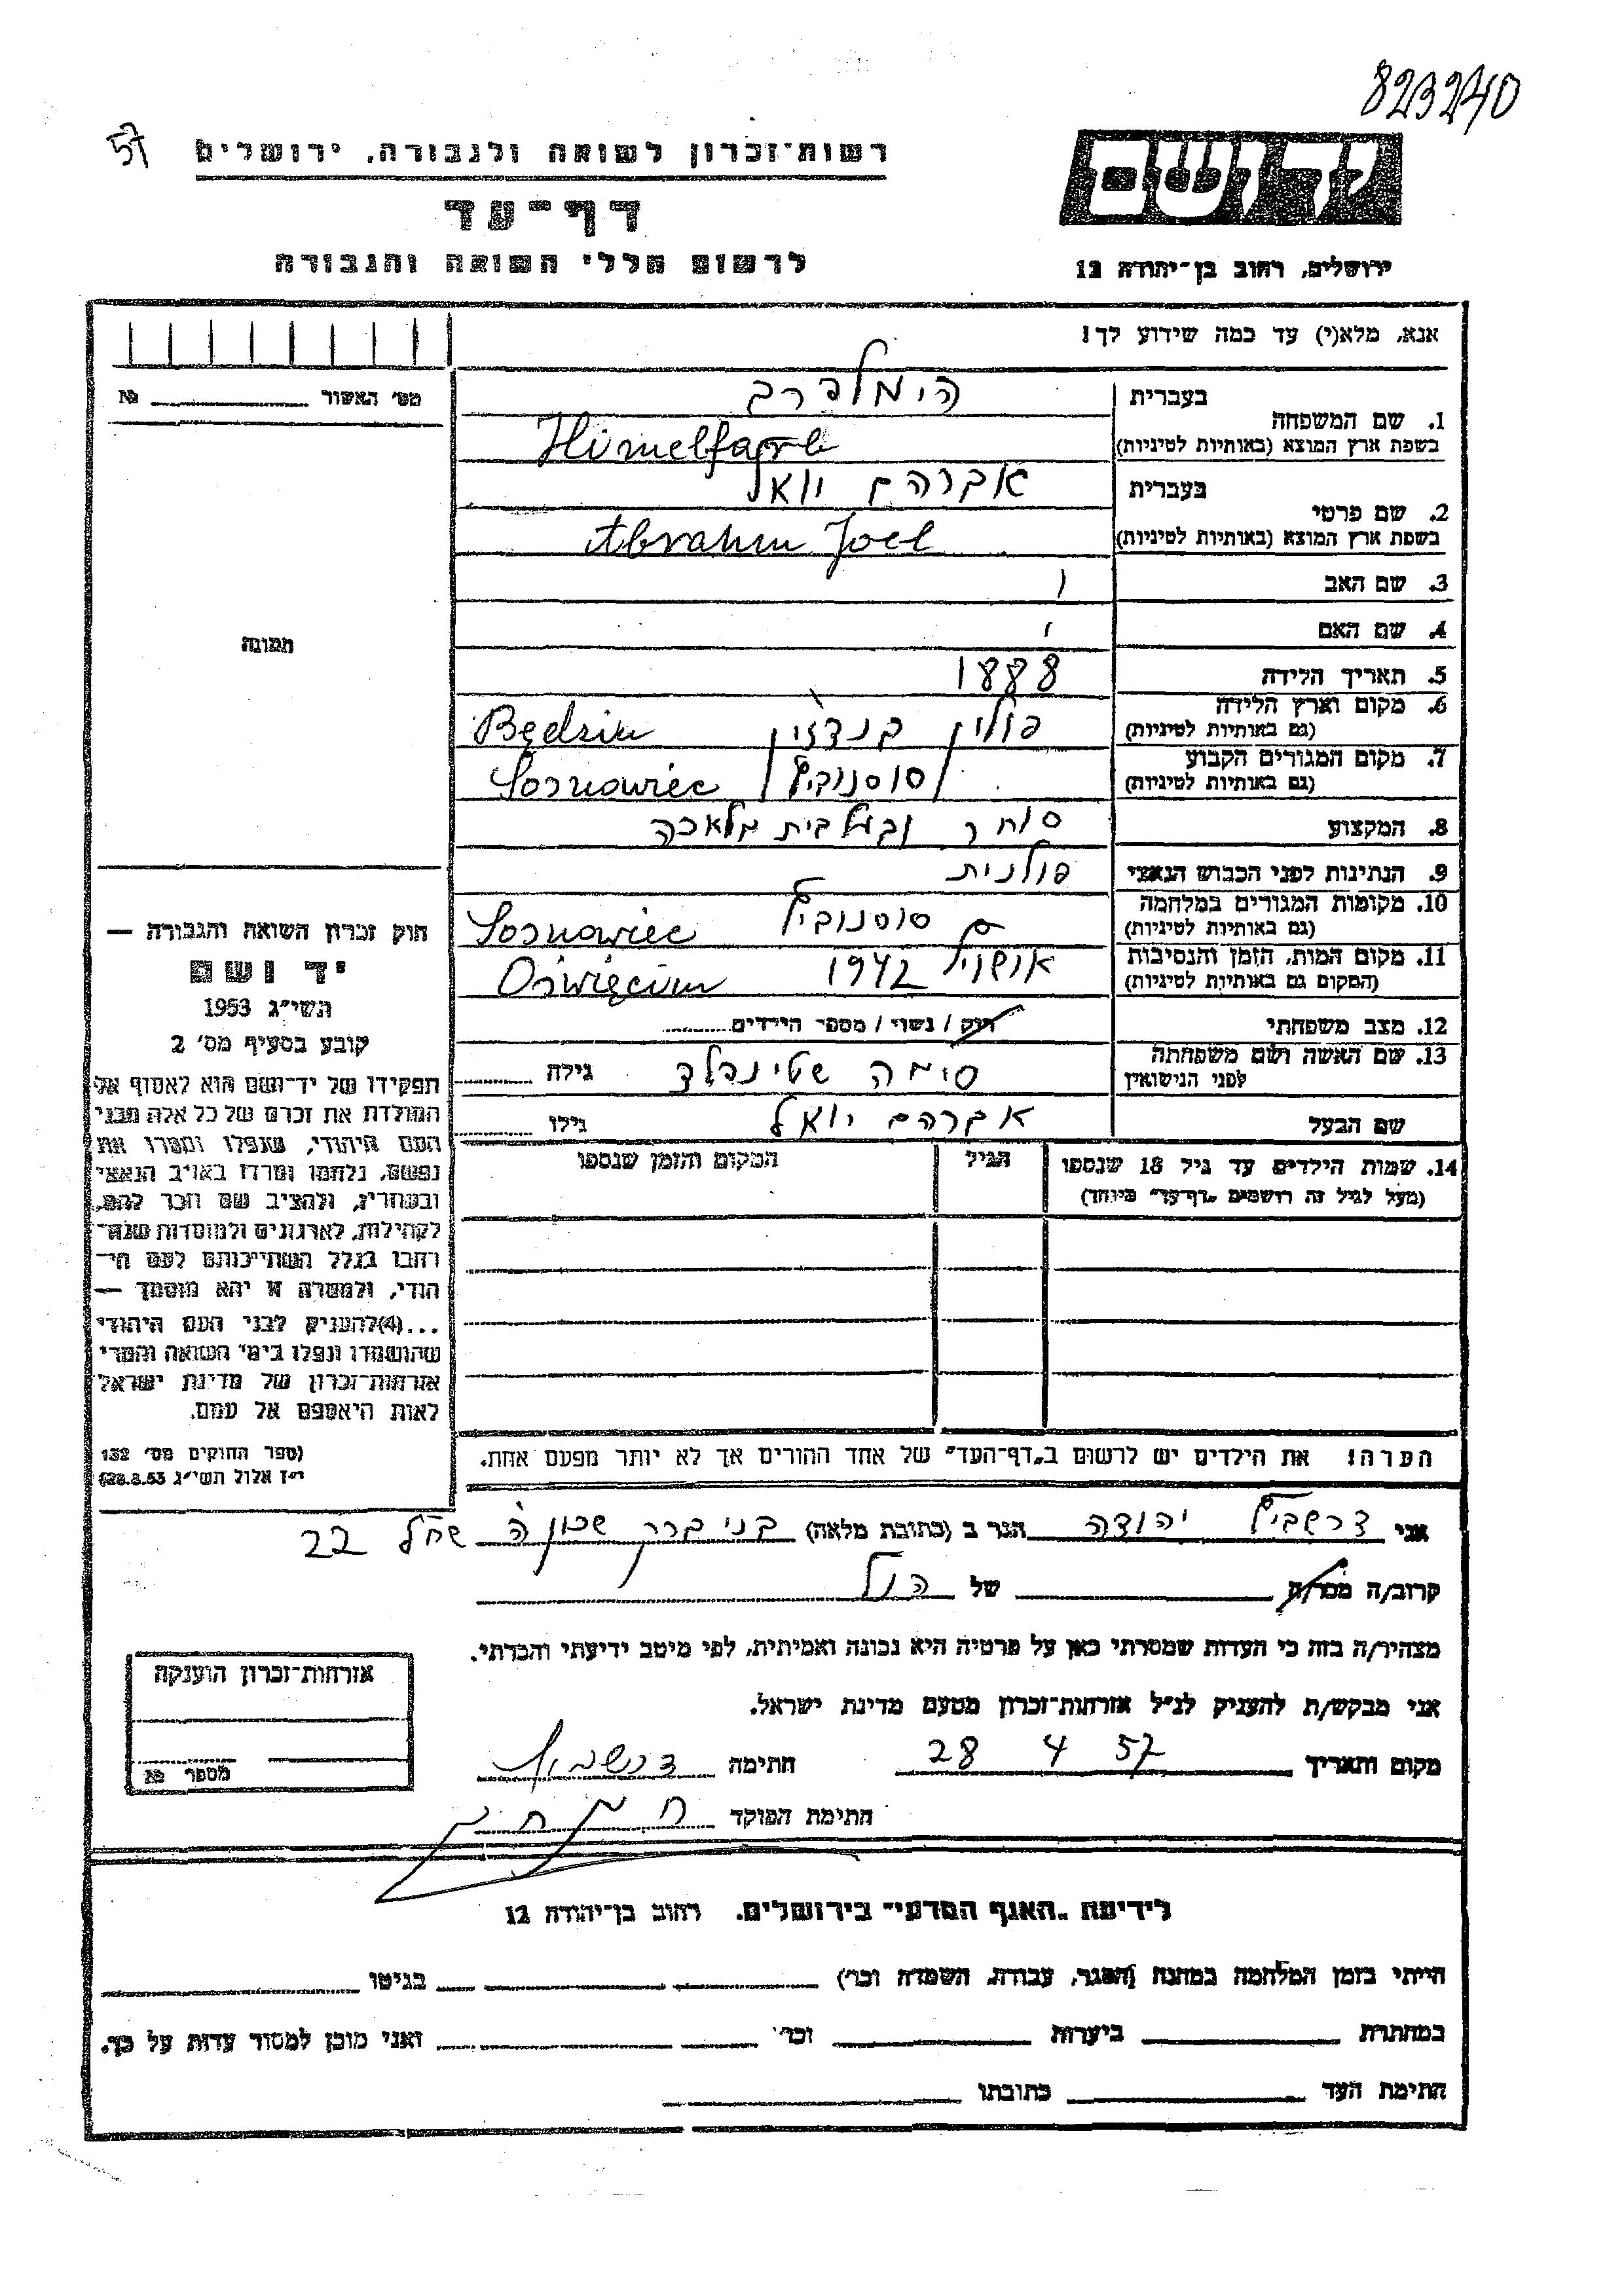 823240
57
רשות־זכרון לשואה ולגבורה, ירושלים
דף־עד
לרשום חללי השואה והגבורה
יד ושם
ירושלים, רחוב בן־יהודה 12
אנא, מלא(י) עד כמה שידוע לך!
מס׳ האשור № 
1. שם המשפחה
בעברית הימלפרב
בשפת ארץ המוצא (באותיות לטיניות) Himelfarb
2. שם פרטי
בעברית אברהם יואל
בשפת ארץ המוצא (באותיות לטיניות) Abrahm Joel
3. שם האב
4. שם האם
5. תאריך הלידה 1888
6. מקום וארץ הלידה פולין בנדזין Będzin
(גם באותיות לטיניות)
7. מקום המגורים הקבוע סוסנוביץ Sosnowiec
(גם באותיות לטיניות)
8. המקצוע סוחר ובעל בית מלאכה
9. הנתינות לפני הכבוש הנאצי פולנית
10. מקומות המגורים במלחמה סוסנוביץ Sosnowiec
(גם באותיות לטיניות)
11. מקום המות, הזמן והנסיבות אושויץ 1942 Oświęcim
(המקום גם באותיות לטיניות)
12. מצב משפחתי רווק / נשוי / מספר הילדים
13. שם האשה ושם משפחתה סימה שטינפלד גילה
לפני הנישואין
שם הבעל אברהם יואל גילו
14. שמות הילדים עד גיל 18 שנספו הגיל המקום והזמן שנספו
(מעל לגיל זה רושמים „דף־עד״ מיוחד)
הערה! את הילדים יש לרשום ב„דף־העד״ של אחד ההורים אך לא יותר מפעם אחת.
תמונה
חוק זכרון השואה והגבורה —
יד ושם
תשי״ג 1953
קובע בסעיף מס׳ 2
תפקידו של יד־ושם הוא לאסוף אל
המולדת את זכרם של כל אלה מבני
העם היהודי, שנפלו ומסרו את
נפשם, נלחמו ומרדו באויב הנאצי
ובעוזריו, ולהציב שם וזכר להם,
לקהילות, לארגונים ולמוסדות שנח־
רבו בגלל השתייכותם לעם הי־
הודי, ולמטרה זו יהא מוסמך —
...(4)להעניק לבני העם היהודי
שהושמדו ונפלו בימי השואה והמרי
אזרחות־זכרון של מדינת ישראל
לאות היאספם אל עמם.
(ספר החוקים מס׳ 132
י״ז אלול תשי״ג 28.8.53)
אני יהודה הגר ב (כתובת מלאה) בני ברק שכון ה׳ 22
קרוב/ה מכר/ה של הנ״ל
מצהיר/ה בזה כי העדות שמסרתי כאן על פרטיה היא נכונה ואמיתית, לפי מיטב ידיעתי והכרתי.
אני מבקש/ת להעניק לנ״ל אזרחות־זכרון מטעם מדינת ישראל.
מקום ותאריך 28 4 57 חתימה
חתימת הפוקד
אזרחות־זכרון הוענקה
מספר №
לידיעת „האגף המדעי״ בירושלים. רחוב בן־יהודה 12
הייתי בזמן המלחמה במחנה (הסגר, עבודה, השמדה וכו׳) בגיטו
במחתרת ביערות וכו׳ ואני מוכן למסור עדות על כך.
חתימת העד כתובתו